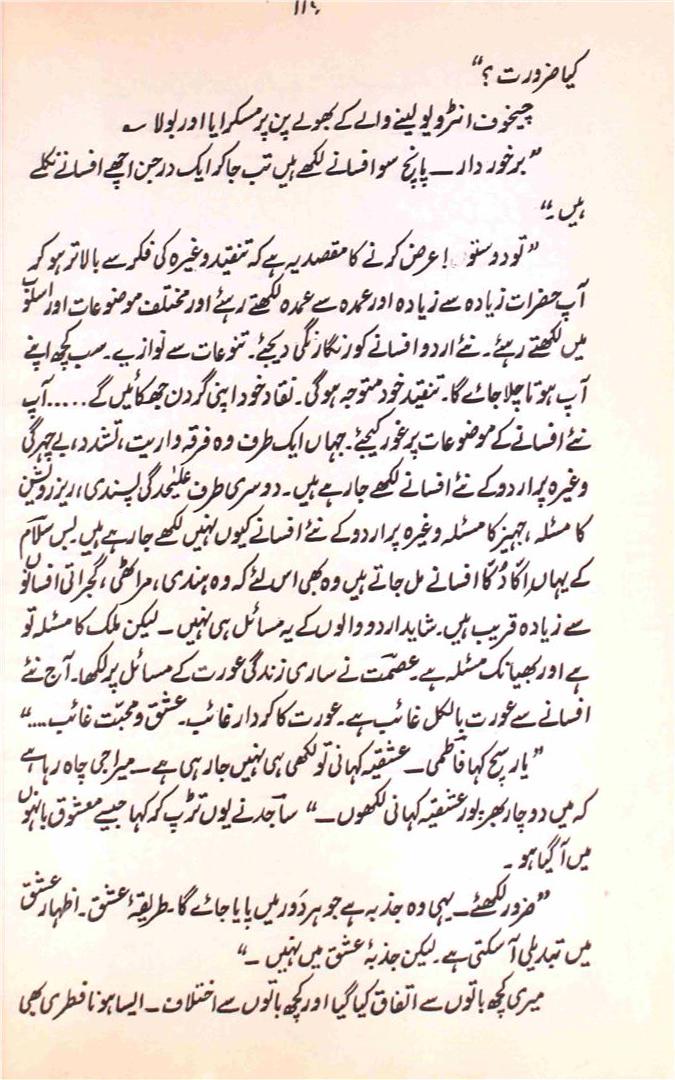 کیا ضرورت ؟"
چیخوف انٹرویو لینے والے کے بھولے پن پر مسکرایا اور بولا ؎
"برخور دار — پانچ سو افسانے لکھے ہیں تب جا کر ایک درجن اچھے افسانے نکلے
ہیں۔"
"تو دوستو ! عرض کرنے کا مقصد یہ ہے کہ تنقید وغیرہ کی فکر سے بالا تر ہو کر
آپ حضرات زیادہ سے زیادہ اور عمدہ سے عمدہ لکھتے رہئے اور مختلف موضوعات اور اسلوب
میں لکھتے رہئے۔ نئے اردو افسانے کو رنگا رنگی دیجئے۔ تنوعات سے نوازیے۔ سب کچھ اپنے
آپ ہوتا چلا جائے گا۔ تنقید خود متوجہ ہوگی۔ نقاد خود اپنی گردن جھکائیں گے ..... آپ
نئے افسانے کے موضوعات پر غور کیجئے۔ جہاں ایک طرف وہ فرقہ واریت، تشدد، بے چہرگی
وغیرہ پر اردو کے نئے افسانے لکھے جا رہے ہیں۔ دوسری طرف علیٰحدگی پسندی، ریزرویشن
کا مسئلہ، جہیز کا مسئلہ وغیرہ پر اردو کے نئے افسانے کیوں نہیں لکھے جا رہے ہیں۔ بس سلام
کے یہاں اِکّا دُکّا افسانے مل جاتے ہیں وہ بھی اس لئے کہ وہ ہندی، مراٹھی، گجراتی افسانوں
سے زیادہ قریب ہیں۔ شاید اردو والوں کے یہ مسائل ہی نہیں — لیکن ملک کا مسئلہ تو
ہے اور بھیانک مسئلہ ہے۔ عصمت نے ساری زندگی عورت کے مسائل پر لکھا۔ آج نئے
افسانے سے عورت بالکل غائب ہے۔ عورت کا کردار غائب۔ عشق و محبّت غائب ...."
"یار سچ کہا فاطمی — عشقیہ کہانی تو لکھی ہی نہیں جا رہی ہے — میرا جی چاہ رہا ہے
کہ میں دو چار بھرپور عشقیہ کہانی لکھوں —" ساجد نے یوں تڑپ کر کہا جیسے معشوق بانہوں
میں آگیا ہو۔
"ضرور لکھئے — یہی وہ جذبہ ہے جو ہر دَور میں پایا جائے گا۔ طریقۂ عشق۔ اظہار عشق
میں تبدیلی آسکتی ہے۔ لیکن جذبۂ عشق میں نہیں —"
میری کچھ باتوں سے اتفاق کیا گیا اور کچھ باتوں سے اختلاف — ایسا ہونا فطری بھی